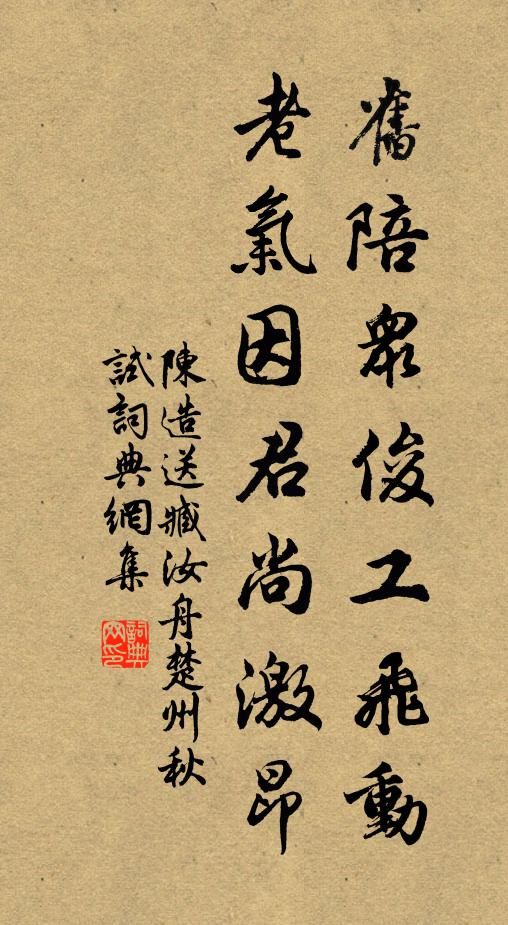 舊陪衆俊工飛動
老氣因君尚激昂
陳造送臧汝舟楚州秋
試詞典網集
詞典
网印